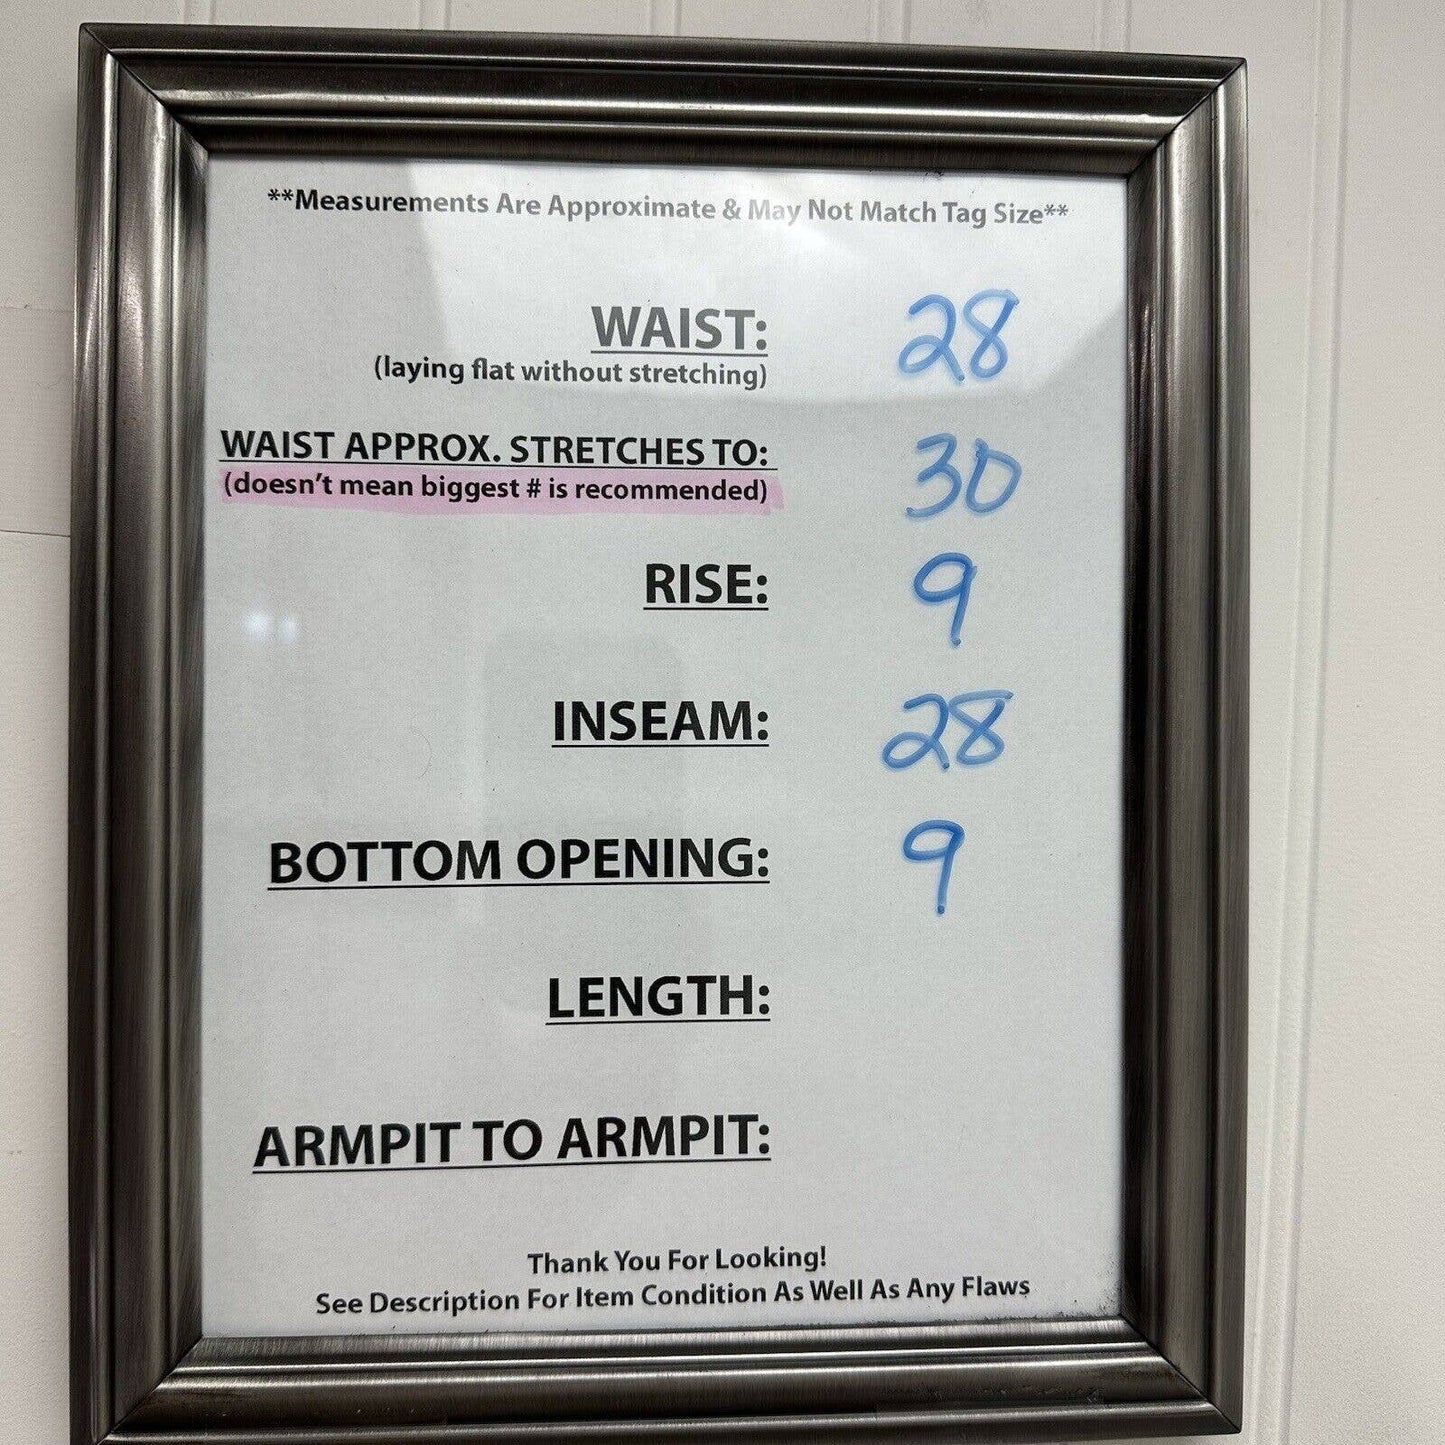 **Measurements Are Approximate & May Not Match Tag Size**
WAIST: 28
(laying flat without stretching)
WAIST APPROX. STRETCHES TO: 30
(doesn't mean biggest # is recommended)
RISE: 9
INSEAM: 28
BOTTOM OPENING: 9
LENGTH:
ARMPIT TO ARMPIT:
Thank You For Looking!
See Description For Item Condition As Well As Any Flaws